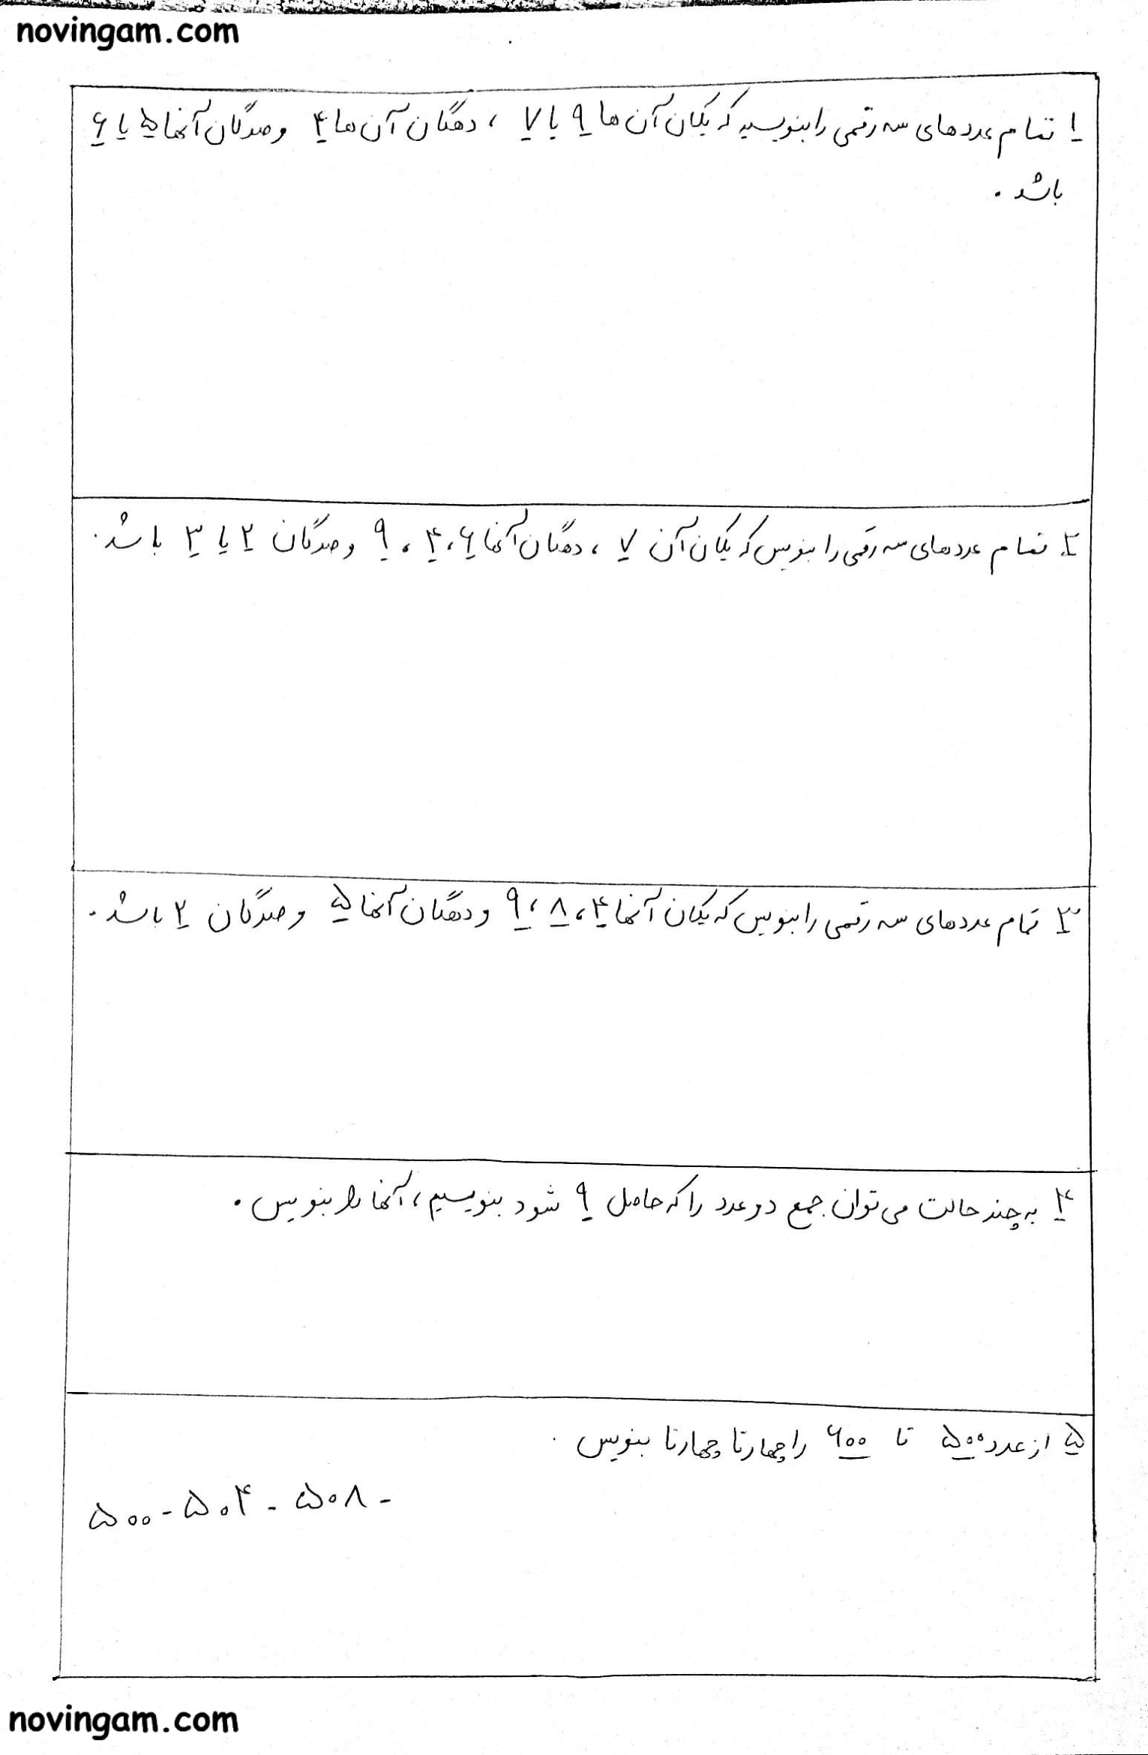 novingam.com
۱ تمام عددهای سه رقمی را بنویسید که یکان آن ها ۹ یا ۷ ، دهگان آن ها ۴ و صدگان آنها ۵ یا ۶
باشد .
۲. تمام عددهای سه رقمی را بنویس که یکان آن ۷ ، دهگان آنها ۶ ، ۴ ، ۹ و صدگان ۲ یا ۳ باشد .
۳ تمام عددهای سه رقمی را بنویس که یکان آنها ۴ ، ۸ ، ۹ و دهگان آنها ۵ و صدگان ۲ باشد .
۴ به چند حالت می توان جمع دو عدد را که حاصل ۹ شود بنویسیم ، آنها را بنویس .
۵ از عدد ۵۰۰ تا ۶۰۰ را چهارتا چهارتا بنویس .
۵۰۰ - ۵۰۴ - ۵۰۸ -
novingam.com